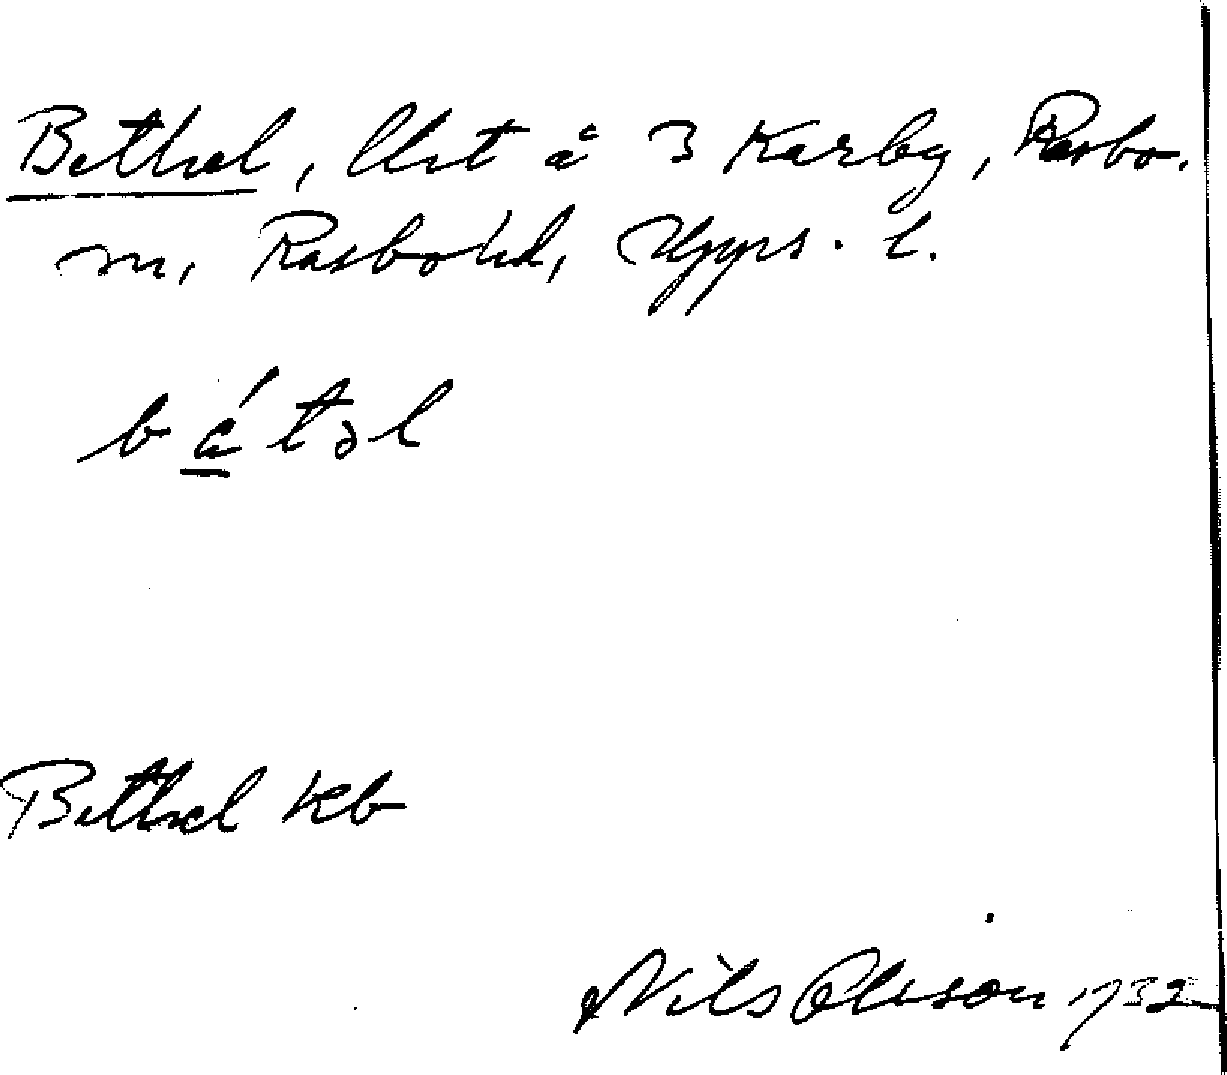 Bethel, lht å 3 Karby, Rasbo.
sn, Rasbo hd, Upps. l.
bátəl
Bethel kb
Nils Olsson 1932